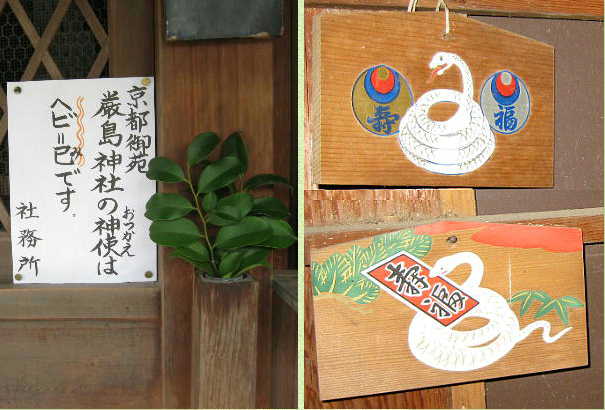 京都御苑
厳島神社の神使は
おつかえ
ヘビ＝巳です。
み
社務所
寿
福
寿福